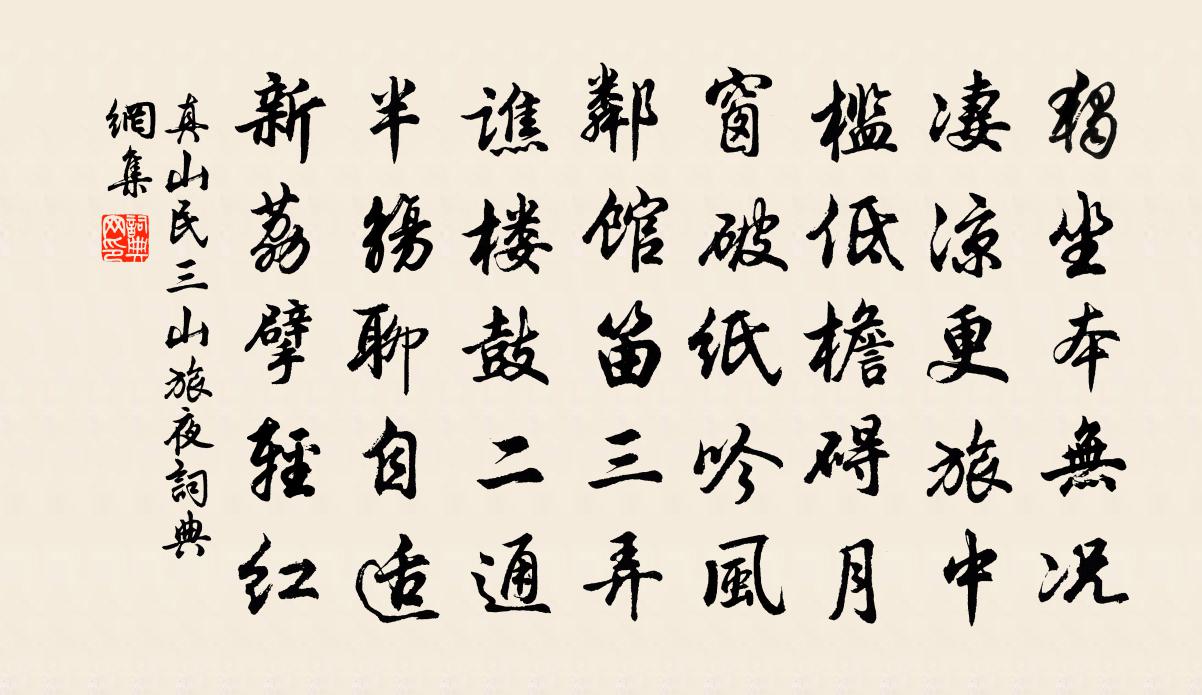 獨坐本無况
凄涼更旅中
檻低檐碍月
窗破紙吟風
鄰館笛三弄
譙楼鼓二通
半觴聊自适
新荔擘輕红
真山民三山旅夜詞典
網集
詞典
网印